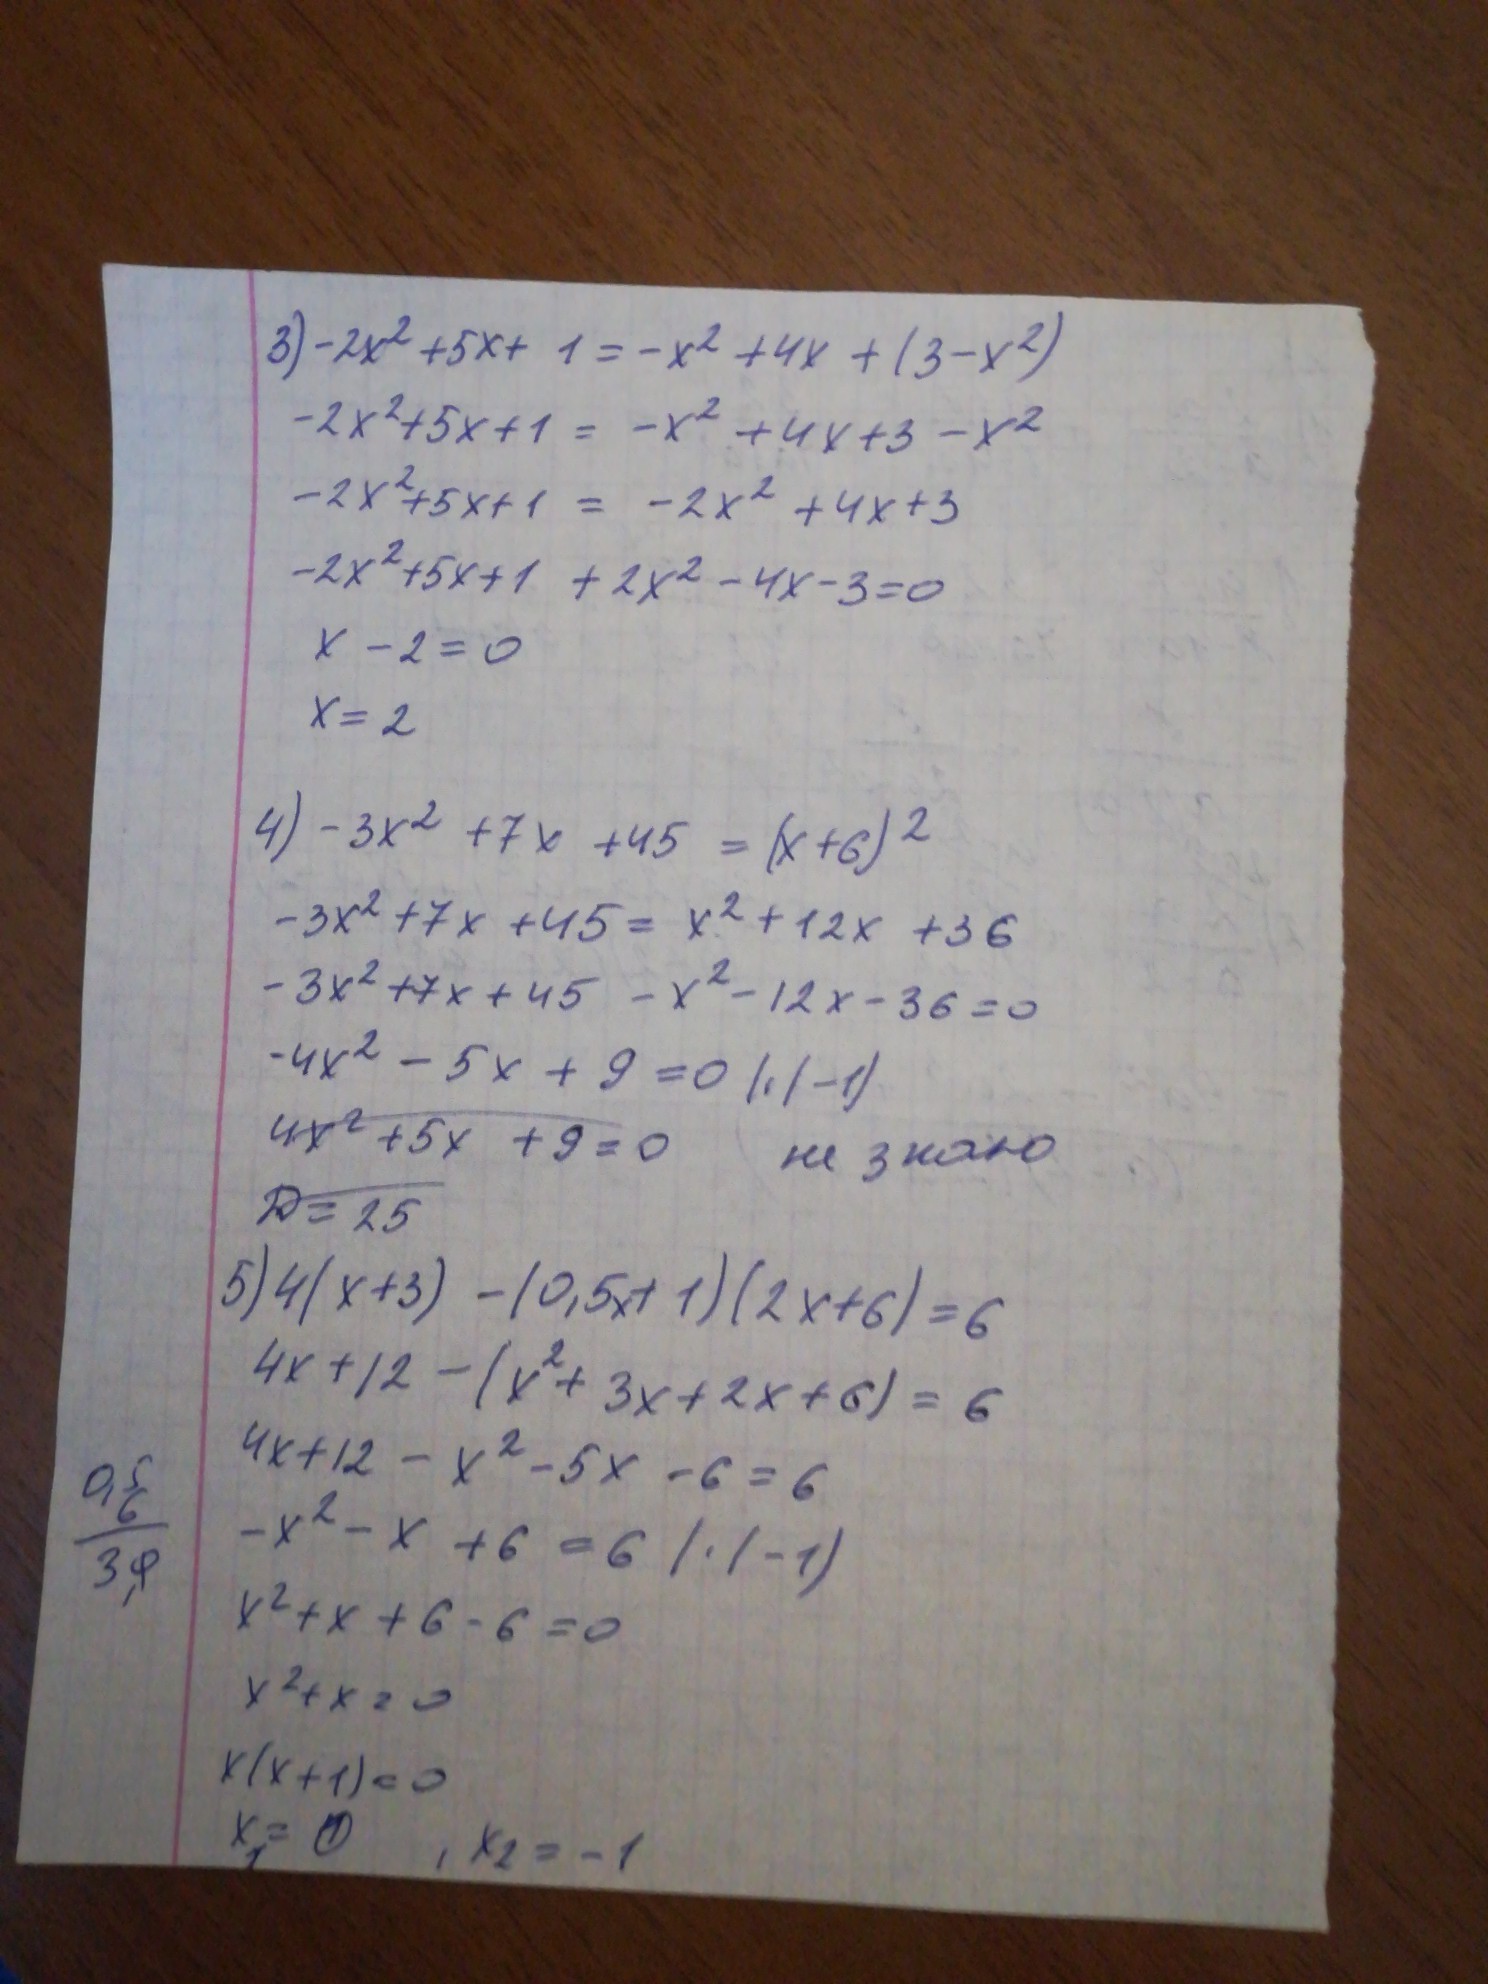 3) -2x² + 5x + 1 = -x² + 4x + (3 - x²)
-2x² + 5x + 1 = -x² + 4x + 3 - x²
-2x² + 5x + 1 = -2x² + 4x + 3
-2x² + 5x + 1 + 2x² - 4x - 3 = 0
x - 2 = 0
x = 2
4) -3x² + 7x + 45 = (x + 6)²
-3x² + 7x + 45 = x² + 12x + 36
-3x² + 7x + 45 - x² - 12x - 36 = 0
-4x² - 5x + 9 = 0 | · (-1)
4x² + 5x + 9 = 0 не знаю
D = 25
5) 4(x + 3) - (0,5x + 1)(2x + 6) = 6
4x + 12 - (x² + 3x + 2x + 6) = 6
4x + 12 - x² - 5x - 6 = 6
-x² - x + 6 = 6 | · (-1)
x² + x + 6 - 6 = 0
x² + x = 0
x(x + 1) = 0
x₁ = 0 , x₂ = -1
0,5
6